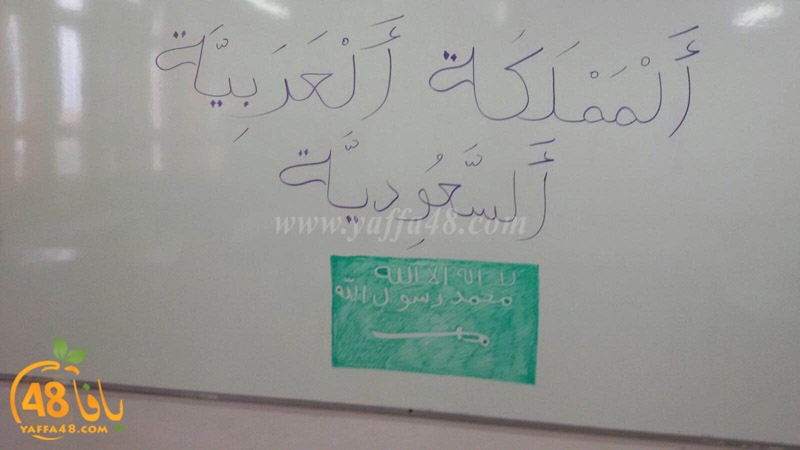 أَلْمَمْلَكَة أَلْعَرَبِيَّة
أَلسَّعُودِيَّة
www.yaffa48.com
لا اله الا الله
محمد رسول الله
48 يافا
YAFFA48.COM